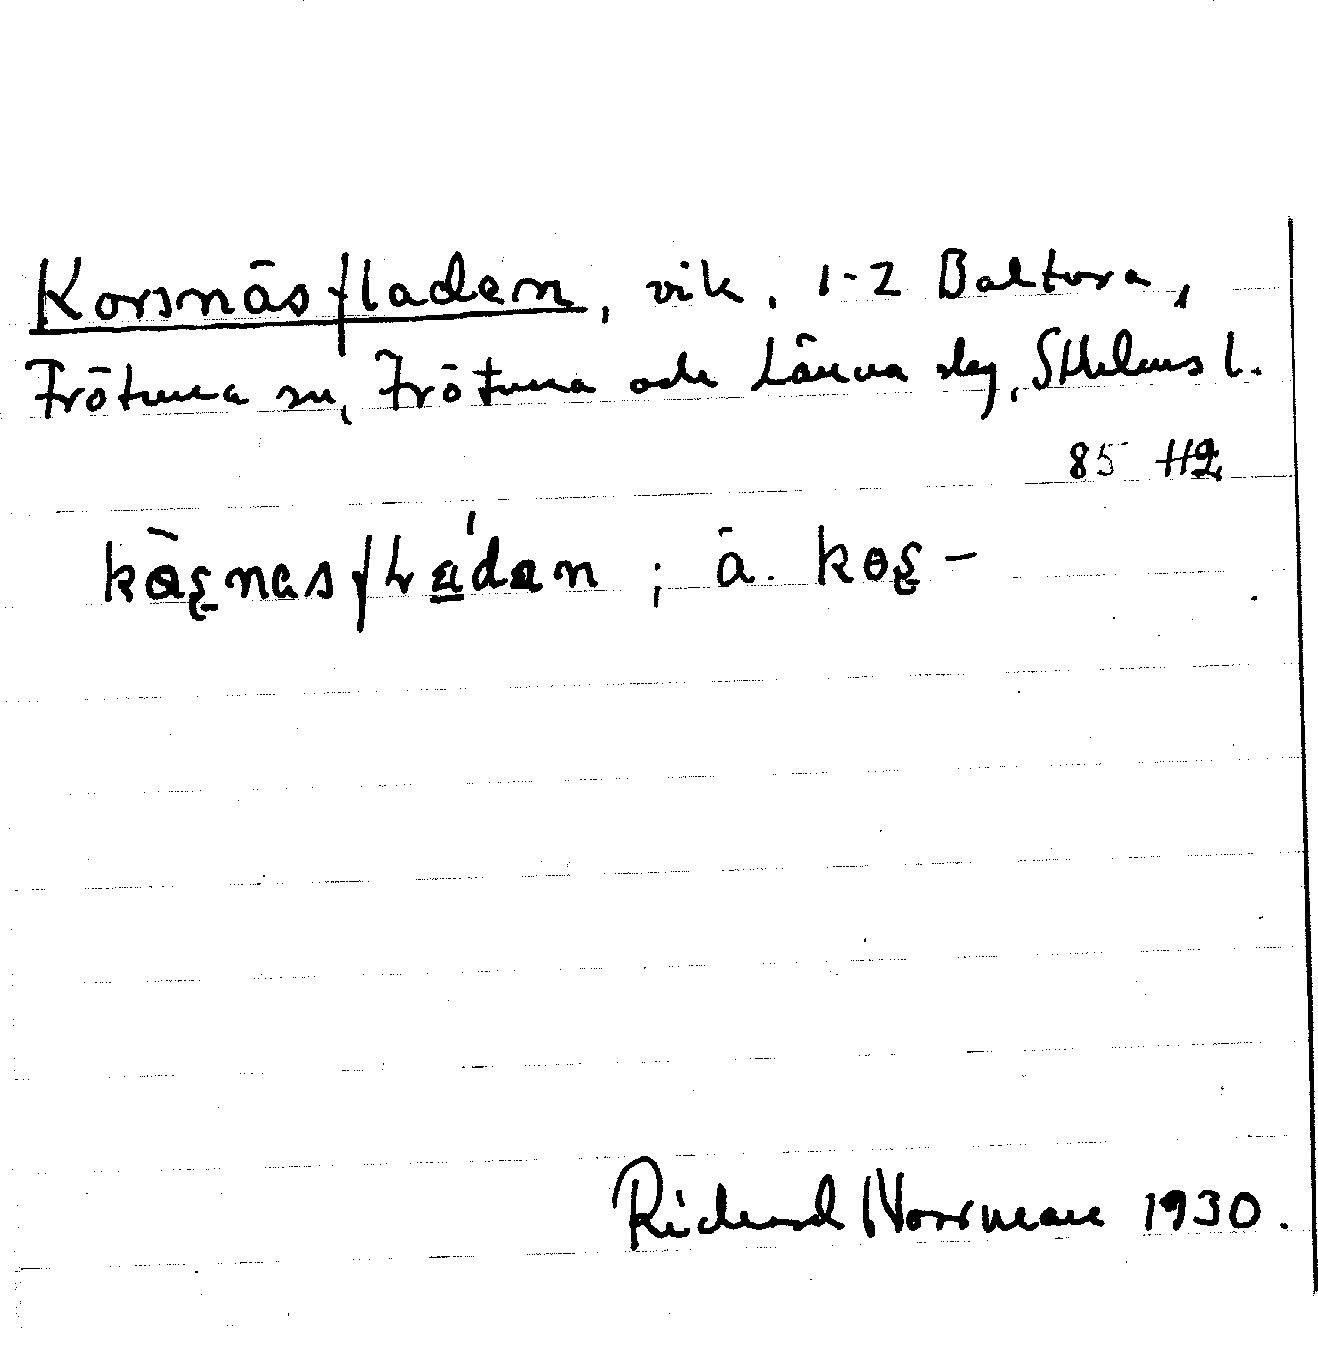 Korsnäsfladen, vik, 1-2 Baltora,
Frötuna sn, Frötuna och Länna slag, Sthlms l.
85 HQ
Richard Norrman 1930.